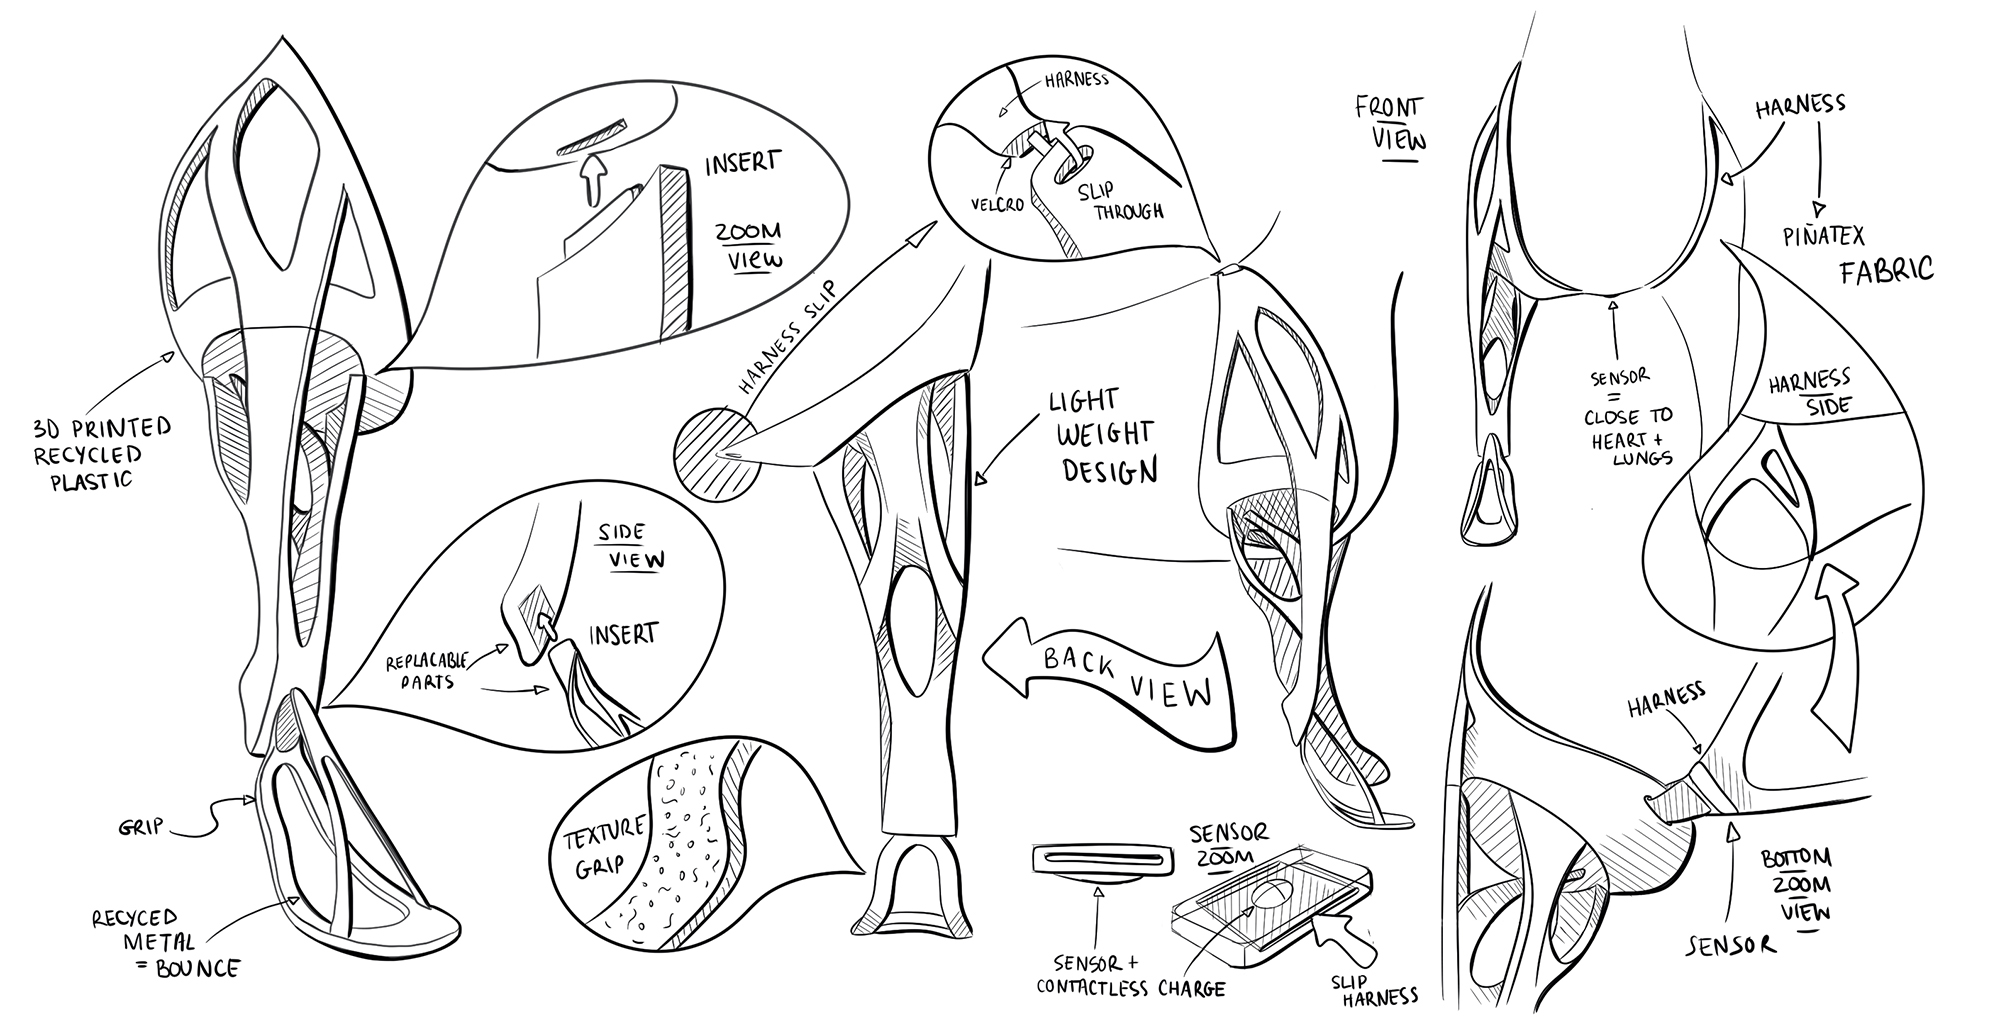 3D PRINTED
RECYCLED
PLASTIC
INSERT
ZOOM
VIEW
SIDE
VIEW
INSERT
REPLACABLE
PARTS
GRIP
RECYCED
METAL
= BOUNCE
TEXTURE
GRIP
HARNESS SLIP
HARNESS
VELCRO
SLIP
THROUGH
LIGHT
WEIGHT
DESIGN
BACK VIEW
SENSOR
ZOOM
SENSOR +
CONTACTLESS CHARGE
SLIP
HARNESS
FRONT
VIEW
HARNESS
PIÑATEX
FABRIC
SENSOR
=
CLOSE TO
HEART +
LUNGS
HARNESS
SIDE
HARNESS
BOTTOM
ZOOM
VIEW
SENSOR